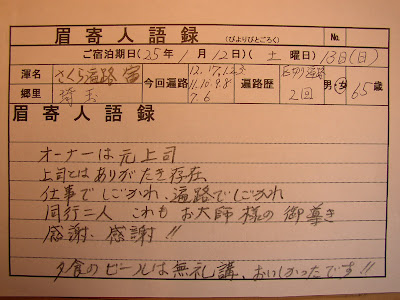 眉寄人語録 (びよりびとごろく) No.
ご宿泊期日(25年1月12日)(土曜日)13日(日)
渾名 さくら遍路宿 今回遍路 12.17.1.2.3 11.10.9.8 7.6 遍路歴 区切り遍路 2回 男・女 65歳
郷里 埼玉
眉寄人語録
オーナーは元上司
上司とはありがたき存在
仕事でしごかれ、遍路でしごかれ
同行二人 これも お大師様の御導き
感謝、感謝!!
夕食のビールは無礼講、おいしかったです!!